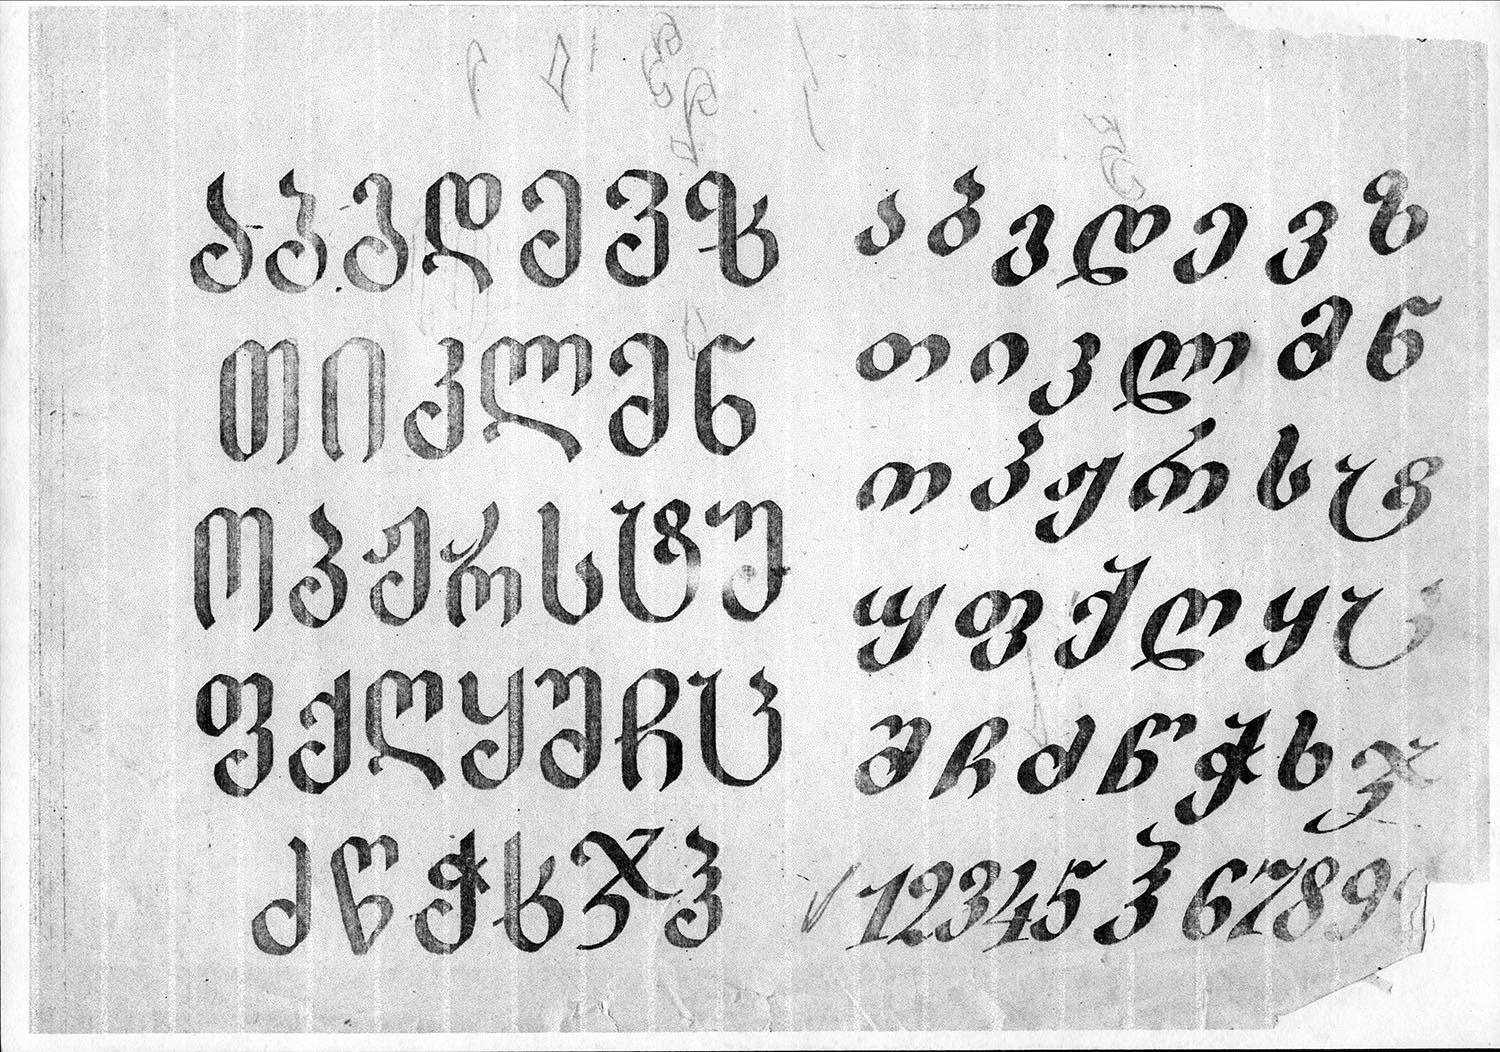 ა ბ გ დ ე ვ ზ
თ ი კ ლ მ ნ
ო პ ჟ რ ს ტ უ
ფ ქ ღ ყ შ ჩ ც
ძ წ ჭ ხ ჯ ჰ
ა ბ გ დ ე ვ ზ
თ ი კ ლ მ ნ
ო პ ჟ რ ს ტ
უ ფ ქ ღ ყ ც
შ ჩ ძ წ ჭ ხ ჯ
12345 ჰ 6789